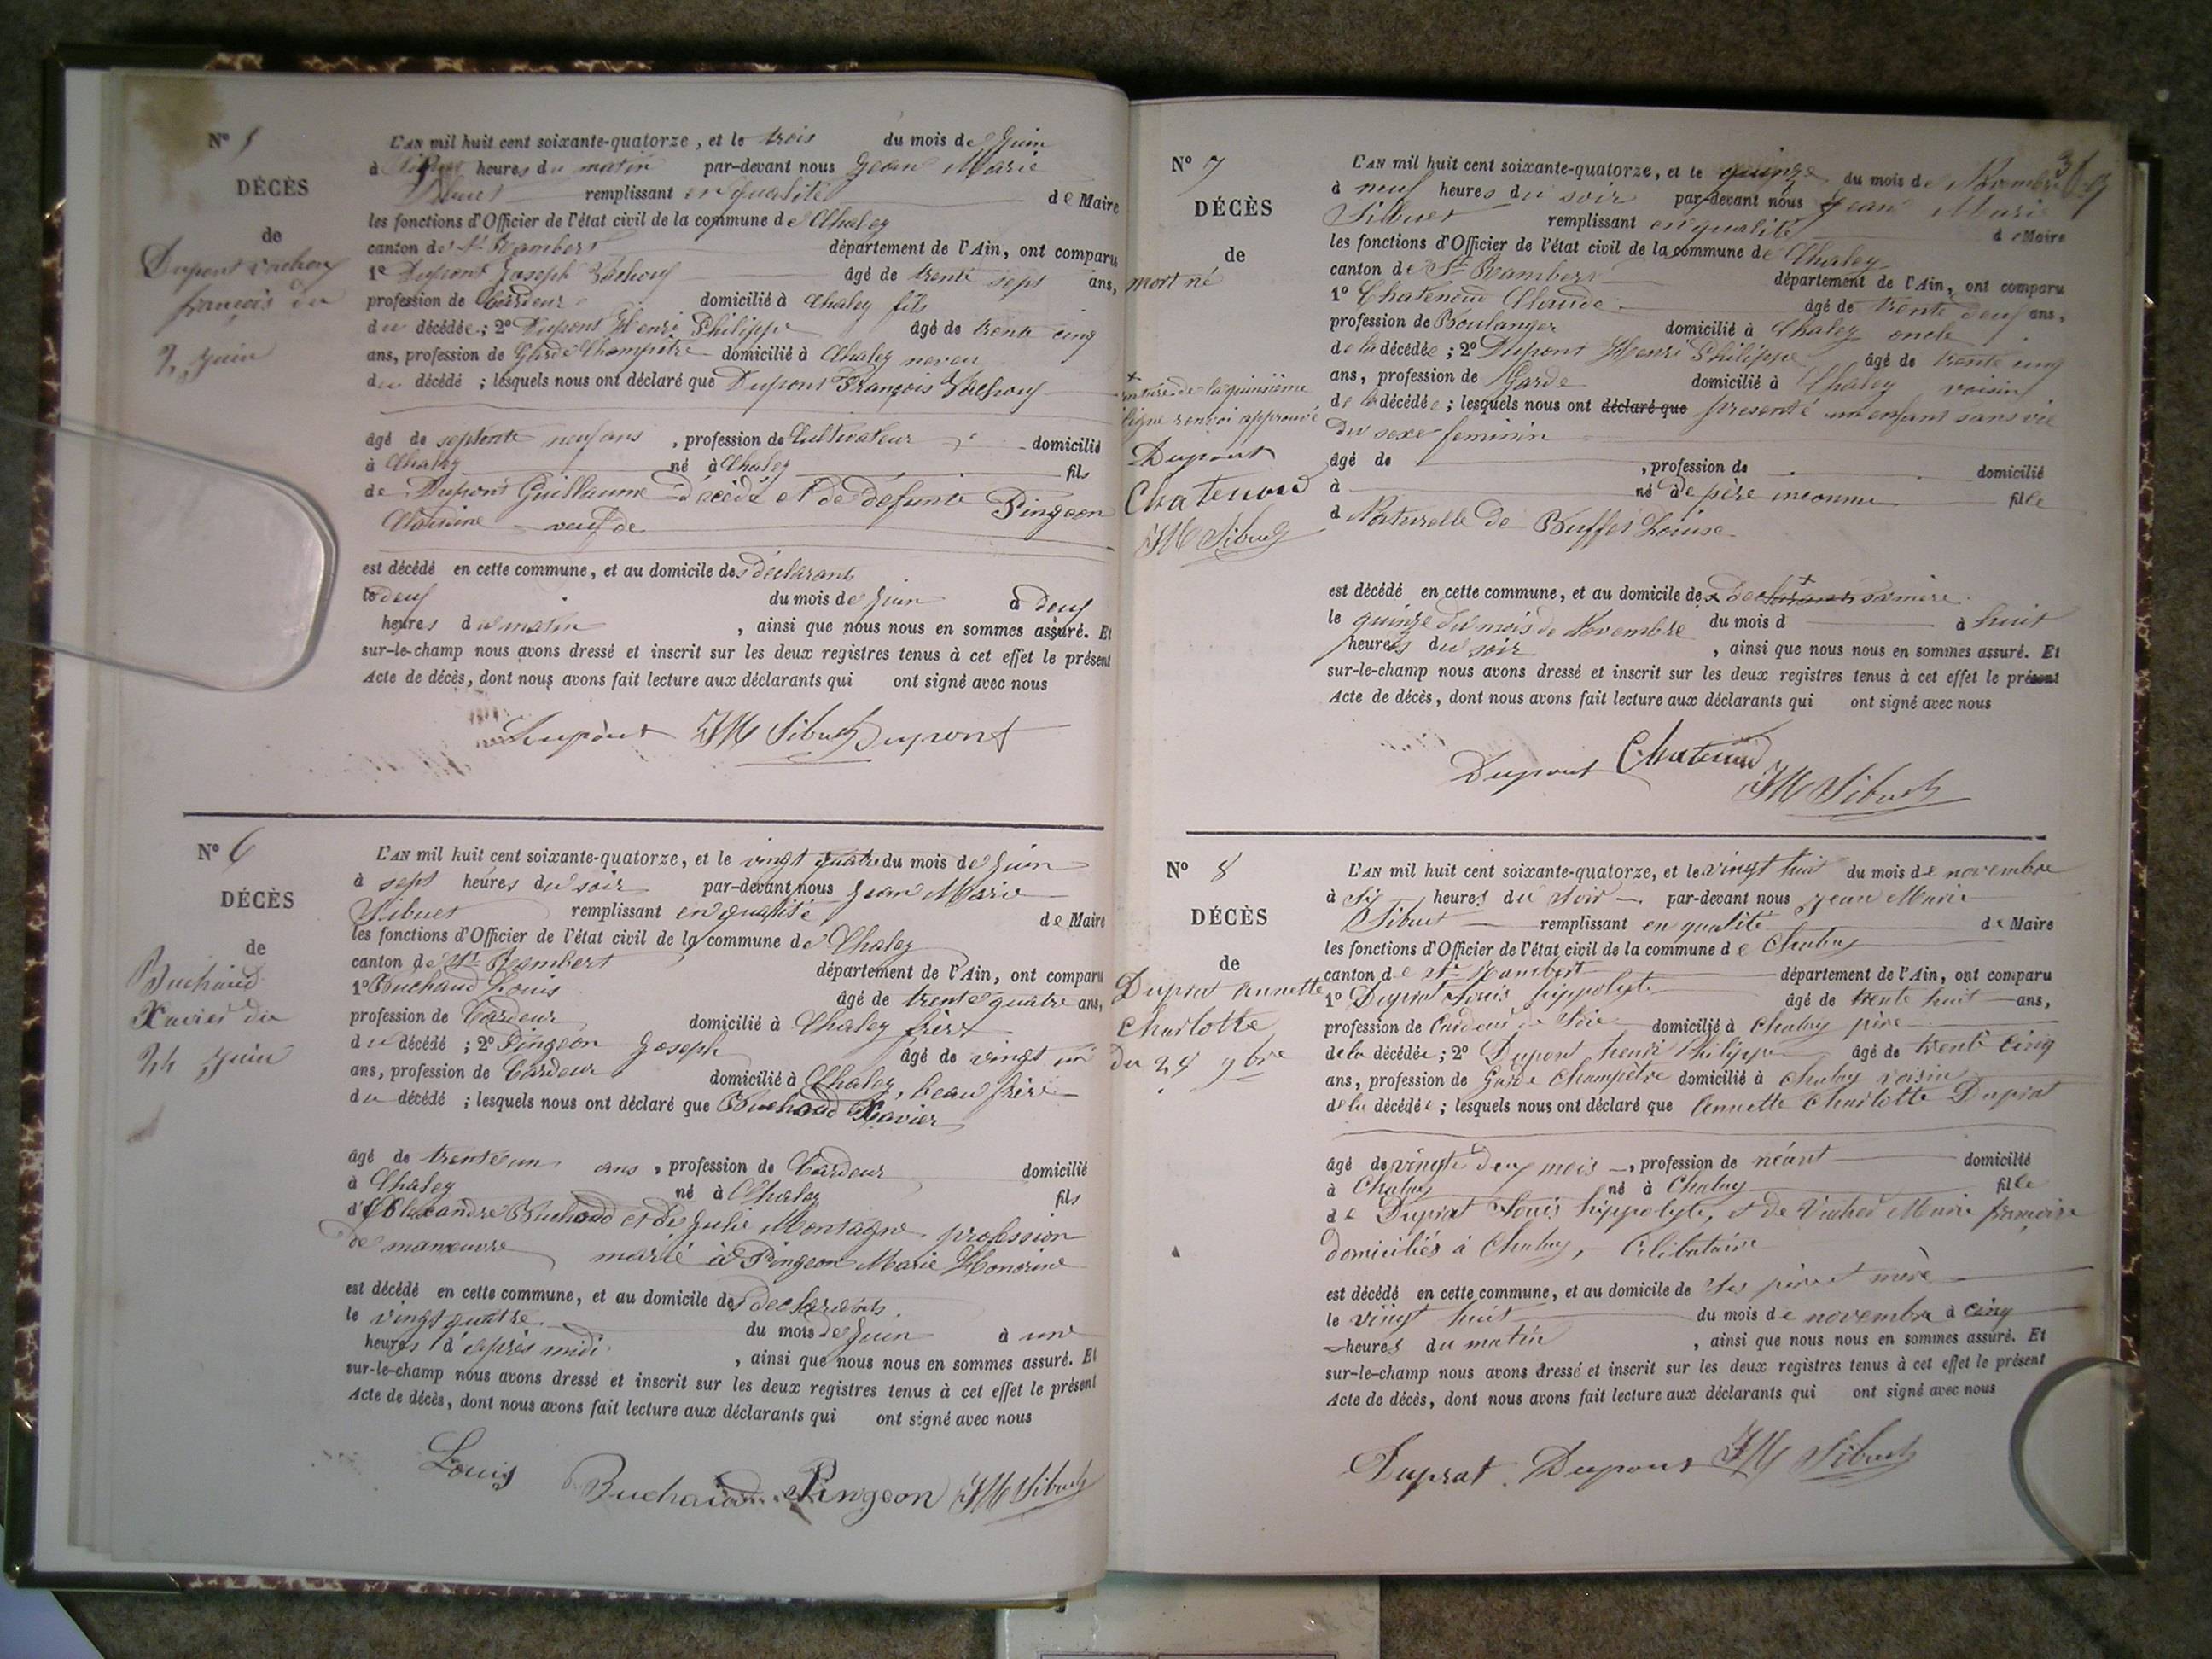 N° 5
DÉCÈS
de
Dupont Vachoux
françois du
2 Juin
L'AN mil huit cent soixante-quatorze, et le trois du mois de Juin
à heures du matin par-devant nous Jean Marie
Sibuet remplissant en qualité de Maire
les fonctions d'Officier de l'état civil de la commune de Chaley
canton de St Rambert département de l'Ain, ont comparu
1° Dupont Joseph Vachoux âgé de trente sept ans,
profession de Cardeur domicilié à Chaley fils
du décédée; 2° Dupont Henri Philippe âgé de trente cinq
ans, profession de Garde Champêtre domicilié à Chaley neveu
du décédé ; lesquels nous ont déclaré que Dupont François Vachoux
âgé de septente neuf ans , profession de Cultivateur domicilié
à Chaley né à Chaley fils
de Dupont Guillaume décédé et de défunte Pingeon
veuf de
est décédé en cette commune, et au domicile des déclarants
le deux du mois de Juin à deux
heures du matin , ainsi que nous nous en sommes assuré. Et
sur-le-champ nous avons dressé et inscrit sur les deux registres tenus à cet effet le présent
Acte de décès, dont nous avons fait lecture aux déclarants qui ont signé avec nous
Dupont JM Sibuet Dupont
N° 6
DÉCÈS
de
Buchaud
Xavier du
24 Juin
L'AN mil huit cent soixante-quatorze, et le vingt quatre du mois de Juin
à sept heures du soir par-devant nous Jean Marie
Sibuet remplissant en qualité de Maire
les fonctions d'Officier de l'état civil de la commune de Chaley
canton de St Rambert département de l'Ain, ont comparu
1° Buchaud Louis âgé de trente quatre ans,
profession de Cardeur domicilié à Chaley frère
du décédé ; 2° Pingeon Joseph âgé de vingt un
ans, profession de Cardeur domicilié à Chaley, beau frère
du décédé ; lesquels nous ont déclaré que Buchaud Xavier
âgé de trente un ans , profession de Cardeur domicilié
à Chaley né à Chaley fils
d'Alexandre Buchaud et de Julie Montagne profession
de manœuvre marié à Pingeon Marie Honorine
est décédé en cette commune, et au domicile des déclarants.
le vingt quatre du mois de Juin à une
heures d'après midi , ainsi que nous nous en sommes assuré. Et
sur-le-champ nous avons dressé et inscrit sur les deux registres tenus à cet effet le présent
Acte de décès, dont nous avons fait lecture aux déclarants qui ont signé avec nous
Louis Buchaud Pingeon JM Sibuet
N° 7
DÉCÈS
de
mort né
rature de la quinzième
ligne renvoi approuvé
Dupont
Chatenoud
JM Sibuet
L'AN mil huit cent soixante-quatorze, et le quinze du mois de Novembre
à neuf heures du soir par-devant nous Jean Marie
Sibuet remplissant en qualité de Maire
les fonctions d'Officier de l'état civil de la commune de Chaley
canton de St Rambert département de l'Ain, ont comparu
1° Chatenoud Claude âgé de trente deux ans,
profession de Boulanger domicilié à Chaley oncle
de la décédée ; 2° Dupont Henri Philippe âgé de trente cinq
ans, profession de Garde domicilié à Chaley voisin
de la décédée ; lesquels nous ont déclaré que presenté un enfant sans vie
du sexe feminin
âgé de , profession de domicilié
à né à de père inconnu fille
d Naturelle de Buffet Louise
est décédé en cette commune, et au domicile des déclarants sa mère
le quinze du mois de Novembre du mois d à huit
heures du soir , ainsi que nous nous en sommes assuré. Et
sur-le-champ nous avons dressé et inscrit sur les deux registres tenus à cet effet le présent
Acte de décès, dont nous avons fait lecture aux déclarants qui ont signé avec nous
Dupont Chatenoud JM Sibuet
N° 8
DÉCÈS
de
Duprat Annette
Charlotte
du 28 9bre
L'AN mil huit cent soixante-quatorze, et le vingt huit du mois de novembre
à Six heures du Soir par-devant nous Jean Marie
Sibuet remplissant en qualité de Maire
les fonctions d'Officier de l'état civil de la commune de Chaley
canton de St Rambert département de l'Ain, ont comparu
1° Duprat Louis hippolyte âgé de trente huit ans,
profession de Cardeur de Soie domicilié à Chaley père
de la décédée ; 2° Dupont henri Philippe âgé de trente cinq
ans, profession de Garde Champêtre domicilié à Chaley voisin
de la décédée ; lesquels nous ont déclaré que Annette Charlotte Duprat
âgé de vingt deux mois , profession de néant domicilié
à Chaley né à Chaley fille
de Duprat Louis hippolyte, et de Marie françoise
domiciliés à Chaley, Célibataire
est décédé en cette commune, et au domicile de Ses père et mère
le vingt huit du mois de novembre à cinq
heures du matin , ainsi que nous nous en sommes assuré. Et
sur-le-champ nous avons dressé et inscrit sur les deux registres tenus à cet effet le présent
Acte de décès, dont nous avons fait lecture aux déclarants qui ont signé avec nous
Duprat. Dupont JM Sibuet